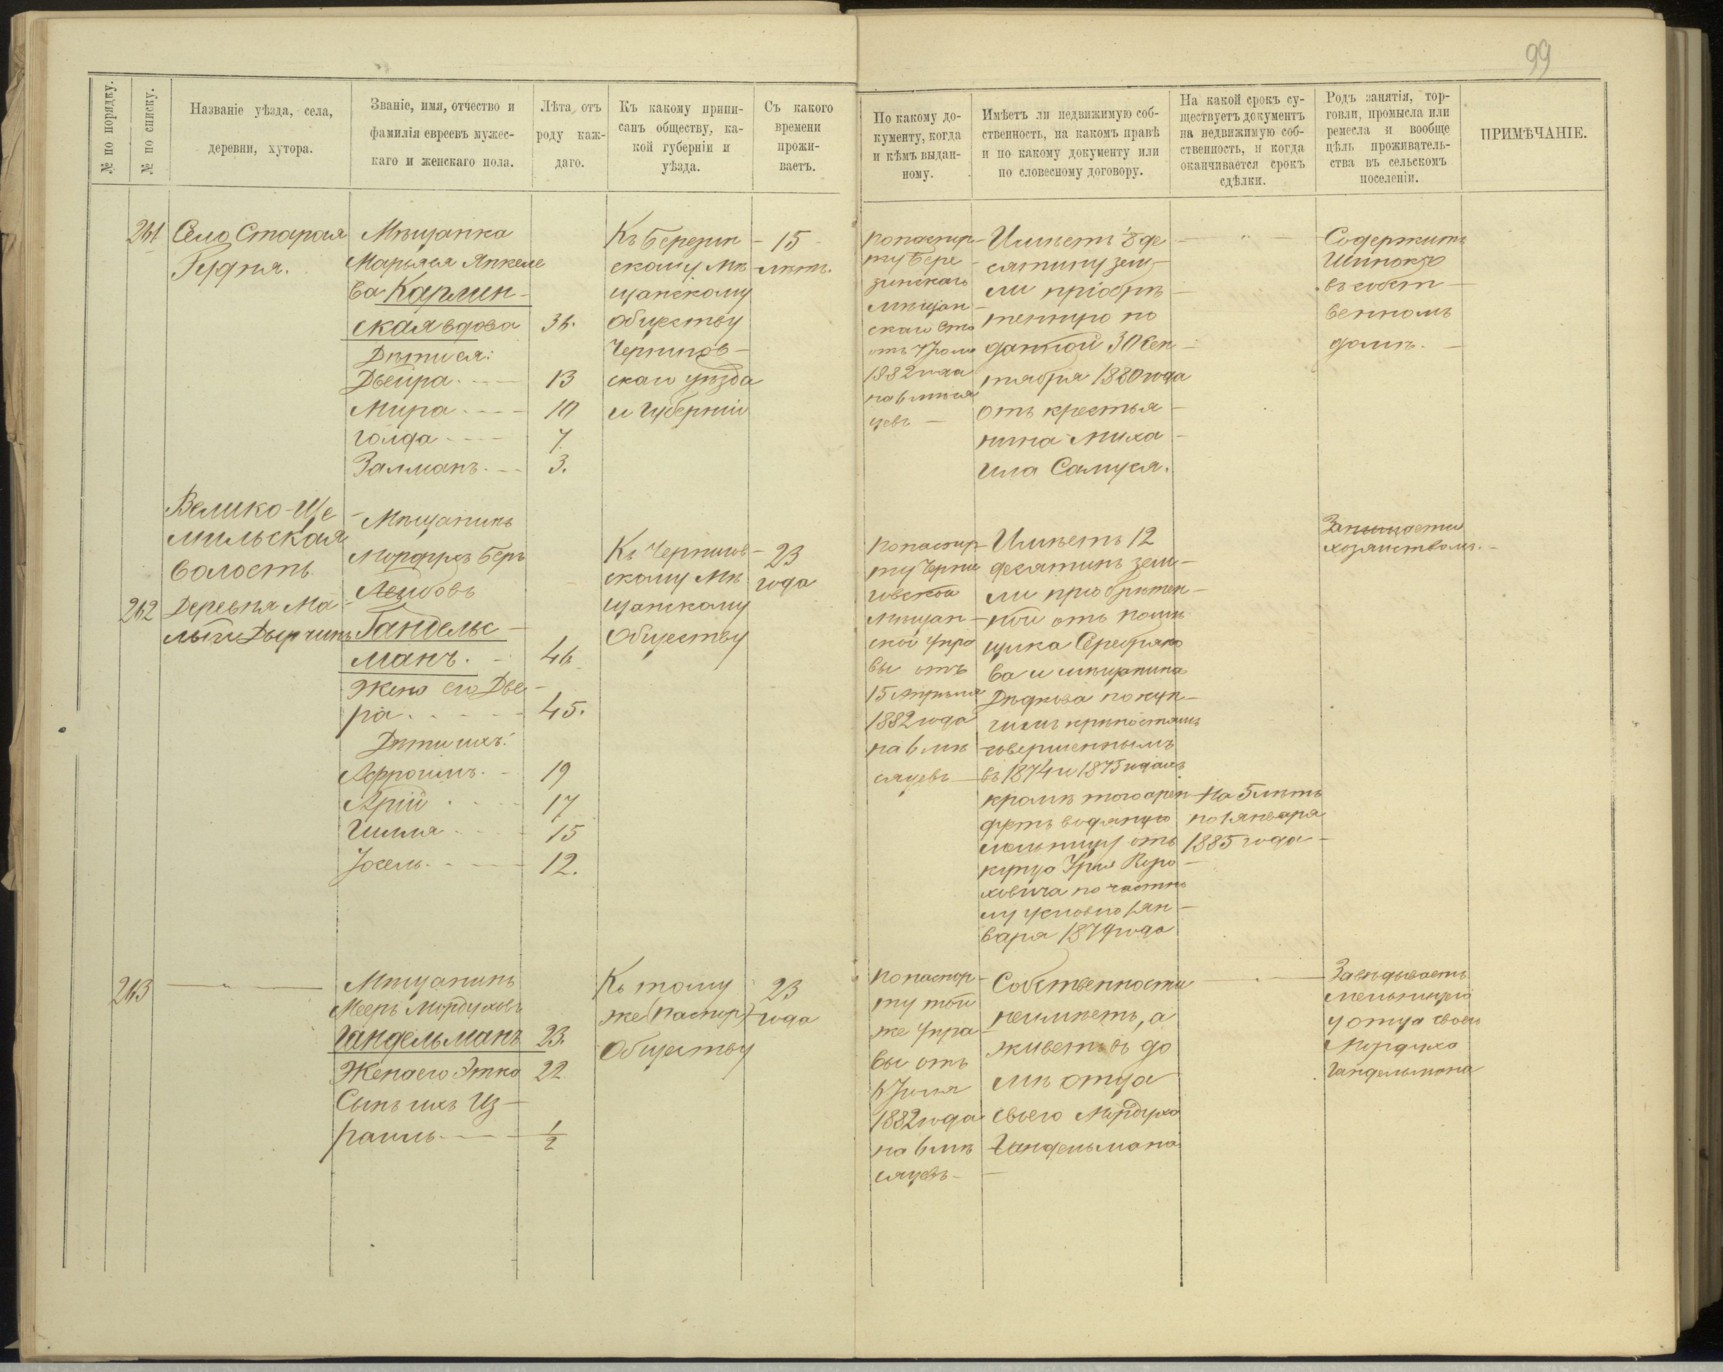 99
№ по порядку.
№ по списку.
Названіе уѣзда, села,
деревни, хутора.
Званіе, имя, отчество и
фамилія евреевъ мужес-
каго и женскаго пола.
Лѣта отъ
роду каж-
даго.
Къ какому припи-
санъ обществу, ка-
кой губерніи и
уѣзда.
Съ какого
времени
прожи-
ваетъ.
По какому до-
кументу, когда
и кѣмъ выдан-
ному.
Имѣетъ ли недвижимую соб-
ственность, на какомъ правѣ
и по какому документу или
по словесному договору.
На какой срокъ су-
ществуетъ документъ
на недвижимую соб-
ственность, и когда
оканчивается срокъ
сдѣлки.
Родъ занятія, тор-
говли, промысла или
ремесла и вообще
цѣль проживатель-
ства въ сельскомъ
поселеніи.
ПРИМѢЧАНІЕ.
261
Село Старая
Гудня.
Мѣщанка
Марьяся Янкеле
ва Карлин-
ская вдова
Дѣти ея:
Двейра
Мира
Голда
Залманъ
36.
13
10
7
3.
Къ Березин
скому Мѣ
щанскому
Обществу
Чернигов-
скаго уѣзда
и Губерніи
15
лѣтъ.
По паспор-
ту Бере
зинскаго
мѣщан-
скаго
1882 года
на 6 мѣся
цевъ
Имѣетъ 8 де
сятину зем-
ли пріобрѣ
тенную по
данной 30 Сен-
тября 1880 года
отъ крестья-
нина Миха
ила Самуся.
Содержитъ
Шинокъ
въ собст-
венномъ
домѣ.
Велико-Ще
мильская
волость
262
Деревня Ма-
лые Дырчинъ
Мѣщанинъ
Мордухъ Беръ
Лейбовъ
Гандельс-
манъ.
Жена его Две-
ра
Дѣти ихъ:
Афроимъ
Арій
Гилля
Іосель
46
45.
19
17
15
12.
Къ Чернигов-
скому Мѣ
щанскому
Обществу
23
года
По паспор-
ту Черни
говской
мѣщан-
ской упра
вы отъ
15 Апрѣля
1882 года
на 6 мѣ
сяцевъ
Имѣетъ 12
десятинъ зем-
ли пріобрѣтен-
ной отъ помѣ
щика Серебряко
ва и мѣщанина
Дѣдкова по куп-
чимъ крѣпостямъ
совершеннымъ
въ 1874 и 1875 годахъ
кромѣ того арен
дуетъ водяную
мельницу отъ
купца Урія Каро
ховича по частно
му условію 1 Ян-
варя 1879 года
На 5 лѣтъ
по 1 Января
1885 года
Занимается
хозяйствомъ.
263
Мѣщанинъ
Мееръ Мордуховъ
Гандельманъ
Жена его Этка
Сынъ ихъ Из-
раиль
23.
22
1/2
Къ тому
же (паспор)
Обществу
23
года
По паспор-
ту той
же упра-
вы отъ
6 Іюля
1882 года
на 6 мѣ
сяцевъ
Собственности
неимѣетъ, а
живетъ въ до
мѣ отца
своего Мордуха
Гандельмана
Завѣдываетъ
мельницею
у отца своего
Мордуха
Гандельмана